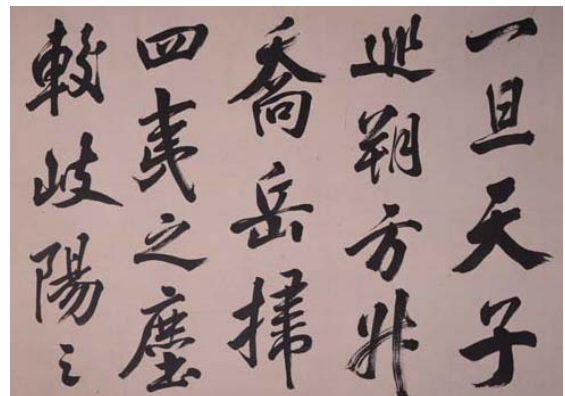 一旦天子
巡朔方升
喬岳掃
四夷之塵
較岐陽之